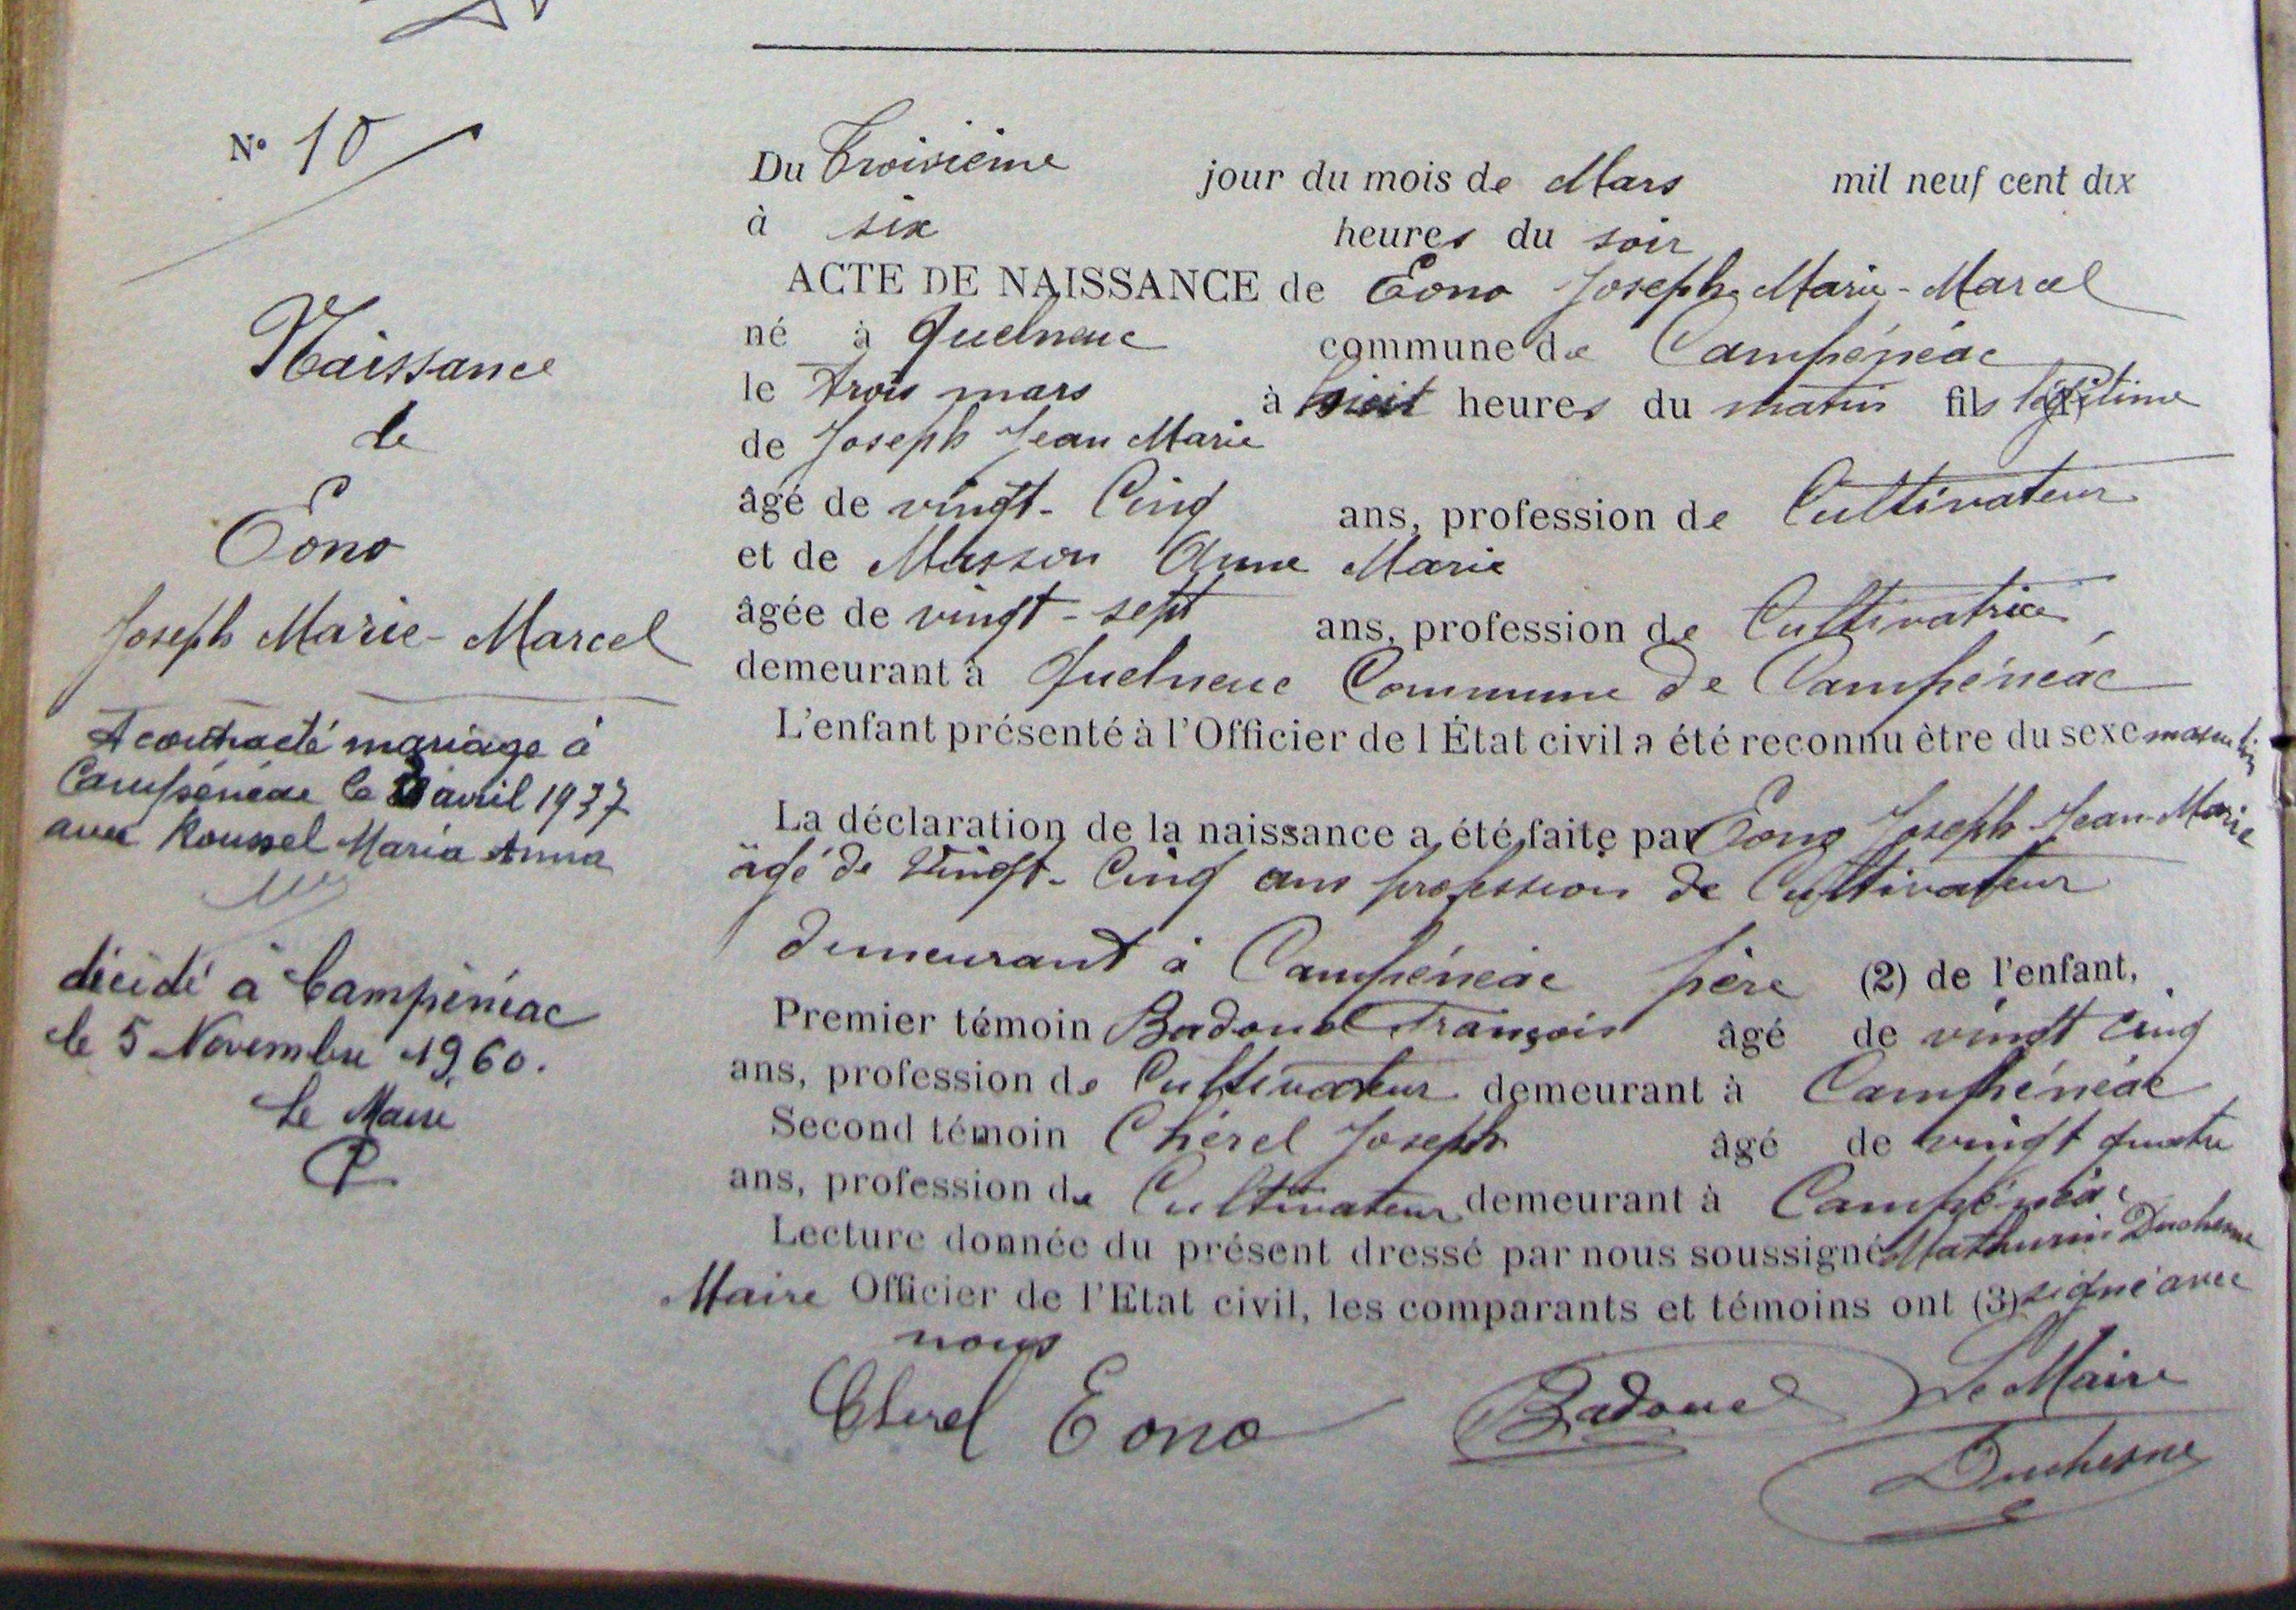 N° 10
Naissance
de
Eono
Joseph Marie-Marcel
A contracté mariage à
Campénéac le avril 1937
avec Roussel Maria Anna
décédé à Campénéac
le 5 Novembre 1960.
Le Maire
Du Troisième jour du mois de Mars mil neuf cent dix
à six heures du soir
ACTE DE NAISSANCE de Eono Joseph Marie-Marcel
né à Quelneuc commune de Campénéac
le trois mars à huit heures du matin fils légitime
de Joseph Jean Marie
âgé de vingt-Cinq ans, profession de Cultivateur
et de Masson Anne Marie
âgée de vingt-sept ans, profession de Cultivatrice
demeurant à Quelneuc Commune de Campénéac
L'enfant présenté à l'Officier de l État civil a été reconnu être du sexe masculin
La déclaration de la naissance a été faite par Eono Joseph Jean-Marie
âgé de Vingt-Cinq ans profession de Cultivateur
demeurant à Campénéac père (2) de l'enfant,
Premier témoin Badouel François âgé de vingt cinq
ans, profession de Cultivateur demeurant à Campénéac
Second témoin Chérel Joseph âgé de vingt quatre
ans, profession de Cultivateur demeurant à Campénéac
Lecture donnée du présent dressé par nous soussigné Mathurin Duchesne
Maire Officier de l'Etat civil, les comparants et témoins ont (3) signé avec
nous
Cherel Eono Badouel Le Maire
Duchesne